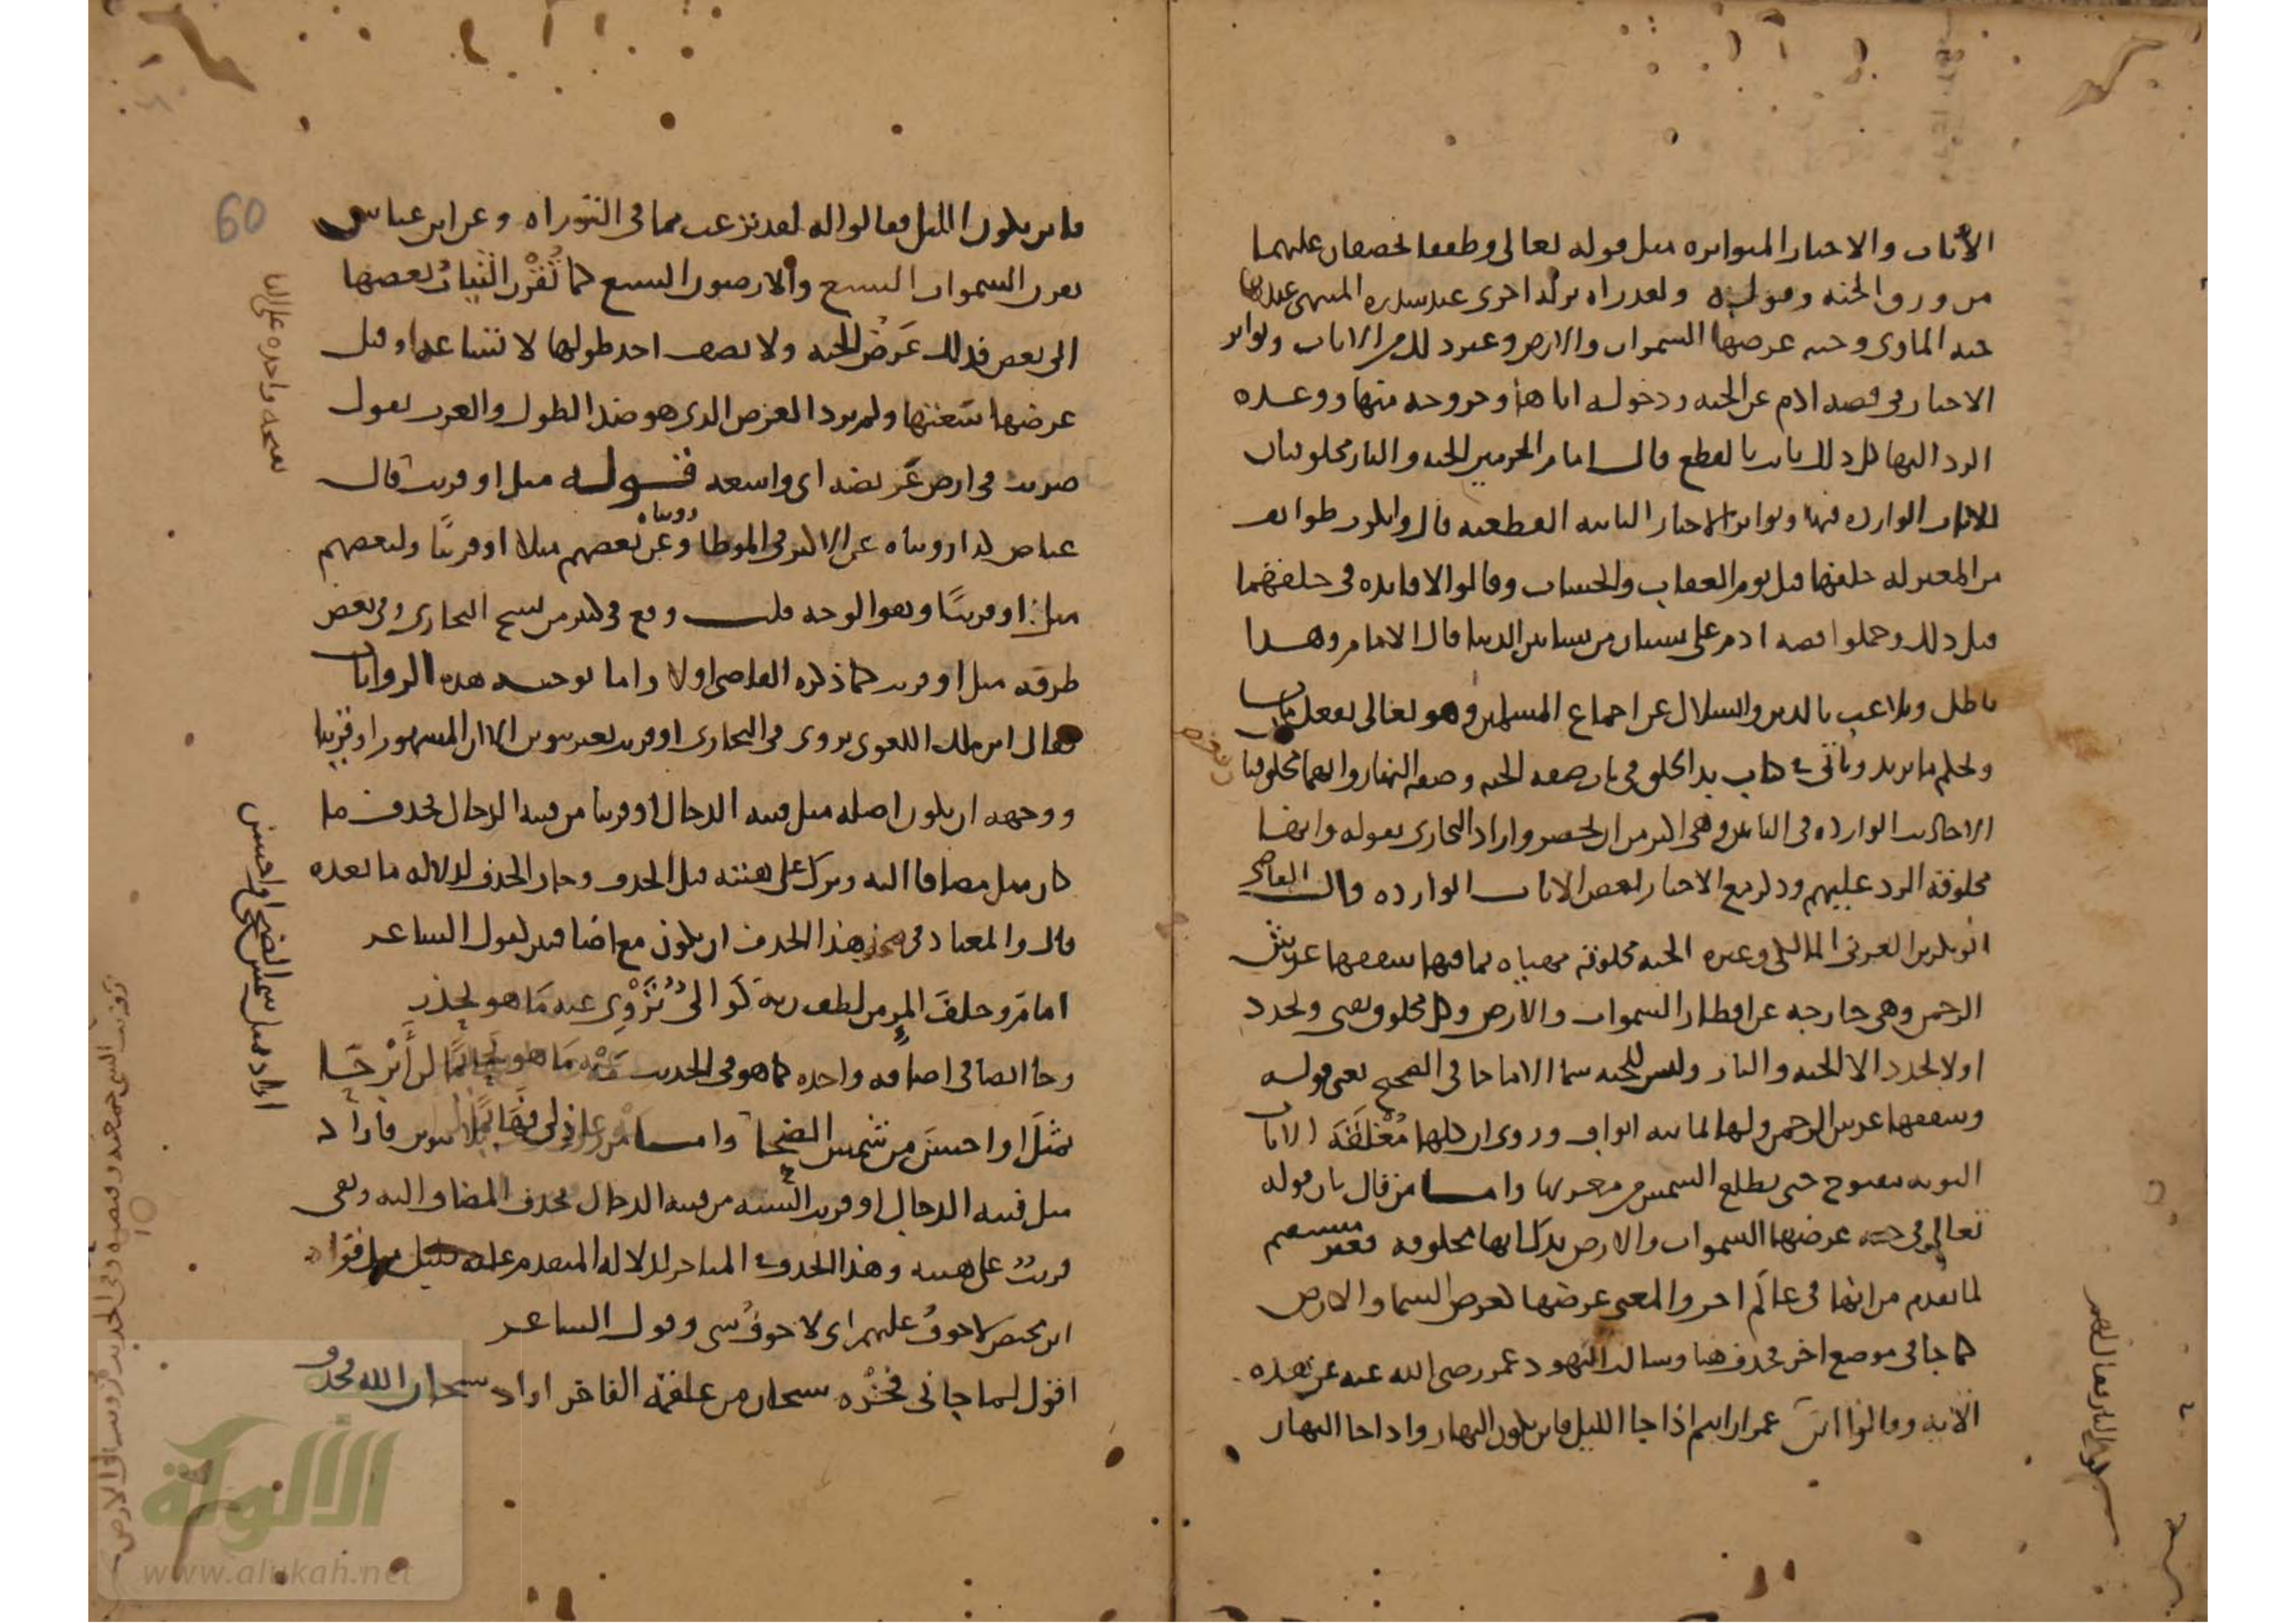 الآيات والاخبار المتواترة مثل قوله تعالى وطفقا يخصفان عليهما
من ورق الجنة وقوله ولقد رآه نزلة اخرى عند سدرة المنتهى عندها
جنة الماوى وجنة عرضها السموات والارض وغير ذلك من الايات وتواتر
الاخبار في قصة ادم عن الجنة ودخوله اياها وخروجه منها ووعده
الرد اليها كل ذلك ثابت بالقطع قال امام الحرمين الجنة والنار مخلوقتان
للايات الواردة فيها وتواتر الاخبار الثابتة القطعية قال وانكرت طوائف
من المعتزلة خلقها قبل يوم العقاب والحساب وقالوا لا فايدة في خلقهما
قبل ذلك وحملوا قصة ادم على بستان من بساتين الدنيا قال الامام وهذا
باطل وتلاعب بالدين وانسلال عن اجماع المسلمين وهو تعالى يفعل ما يشا
ويحكم ما يريد وياتي في كتاب بدا الخلق في باب صفة الجنة وصفة النار وانهما مخلوقتا
الاحاديث الواردة في الباب وهي اكثر من ان تحصر واراد البخاري بقوله وانها
مخلوقة الرد عليهم وذكر مع الاخبار بعض الايات الواردة قال القاضي
ابو بكر بن العربي المالكي وغيره الجنة مخلوقة مهياه بما فيها سقفها عرش
الرحمن وهي خارجة عن اقطار السموات والارض وكل مخلوق يفنى ويجدد
اولا يجدد الا الجنة والنار وليس للجنة سما الا ما جا في الصحيح يعني قوله
وسقفها عرش الرحمن ولها ثمانية ابواب وروي ان كلها مُغْلَقَة الا باب
التوبة مفتوح حتى تطلع الشمس من مغربها واما من قال بان قوله
تعالى في جنة عرضها السموات والارض يدل انها مخلوقة فغير مستقيم
لما تقدم من انها في عالَم اخر والمعنى عرضها كعرض السما والارض
كما جا في موضع اخر فحذف هنا وسالت اليهود عمر رضي الله عنه عن هذه
الآية وقالوا اين النار فقال لهم عمر ارايتم اذا جا الليل فاين يكون النهار واذا جا النهار
فاين يكون الليل فقالوا له لقد نزعت بما في التوراة وعن ابن عباس
تقرن السموات السبع والارضون السبع كما تُقْرَن الثيابُ بعضها
الى بعض فذلك عَرْضُ الجنة ولا يصف احد طولها لاتساعه وقيل
عرضها سَعَتها ولم يرد العرض الذي هو ضد الطول والعرب تقول
ضربت في ارض عَريضة اي واسعة قوله مثل او قريب قال
عياض كذا رويناه عن الاكثر في الموطا ورويناه عن بعضهم مثلا او قريبًا ولبعضهم
مثل او قريبًا وهو الوجه قلت وقع في كثير من نسخ البخاري وفي بعض
طرقه مثل او قريب كما ذكره القاضي اولا واما توجيه هذه الروايات
فقال ابن مالك اللغوي يروى في البخاري او قريب بغير تنوين والمشهور او قريبا
ووجهه ان يكون اصله مثل فتنة الدجال او قريبا من فتنة الدجال فحذف ما
كان مثل مضافا اليه وترك على هيئته قبل الحذف وجاز الحذف لدلالة ما بعده
قال والمعتاد في صحة هذا الحذف ان يكون مع اضافتين كقول الشاعر
امامَ وخلفَ المرءِ من لطف ربه كَوَالئُ تَزْوِي عنه مَا هو يحذر
وجا ايضا في اضافة واحدة كما هو في الحديث مَهْ عَاذِلي فهَائِمًا لن أَبْرَحَا
بمثلَ او احسنَ من شمس الضحا واما من روى قريب بلا تنوين فاراد
مثل فتنة الدجال او قريب الشبه من فتنة الدجال فحذف المضاف اليه وبقي
قريبُ على هيئته وهذا الحذف في المتاخر لدلالة المتقدم عليه قليل مثل قراة
ابن محيصن لا خوفُ عليهم اي لا خوفُ شي وقول الشاعر
اقول لما جاني فَخْرُه سبحان من علقمة الفاخر اراد سبحان الله فحذف
60
اراد مثل شمس الضحى او احسن
ابواب النار يقال لهم